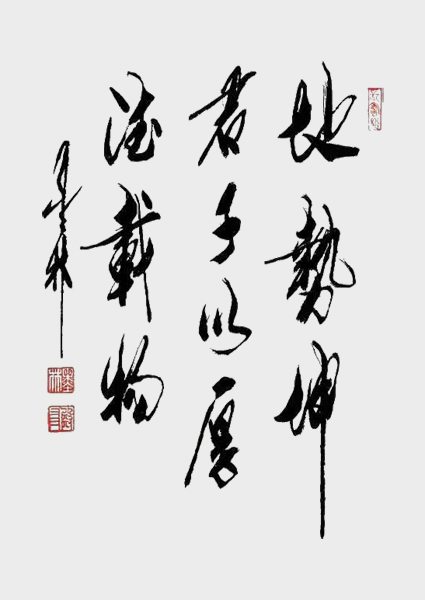 地勢坤
君子以厚
德載物
墨林